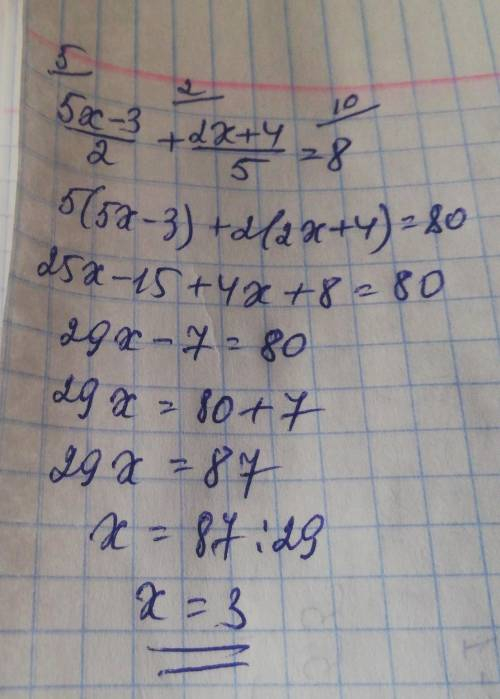 5 2 10
5x-3/2 + 2x+4/5 = 8
5(5x-3)+2(2x+4)=80
25x-15+4x+8=80
29x-7=80
29x=80+7
29x=87
x=87:29
x=3